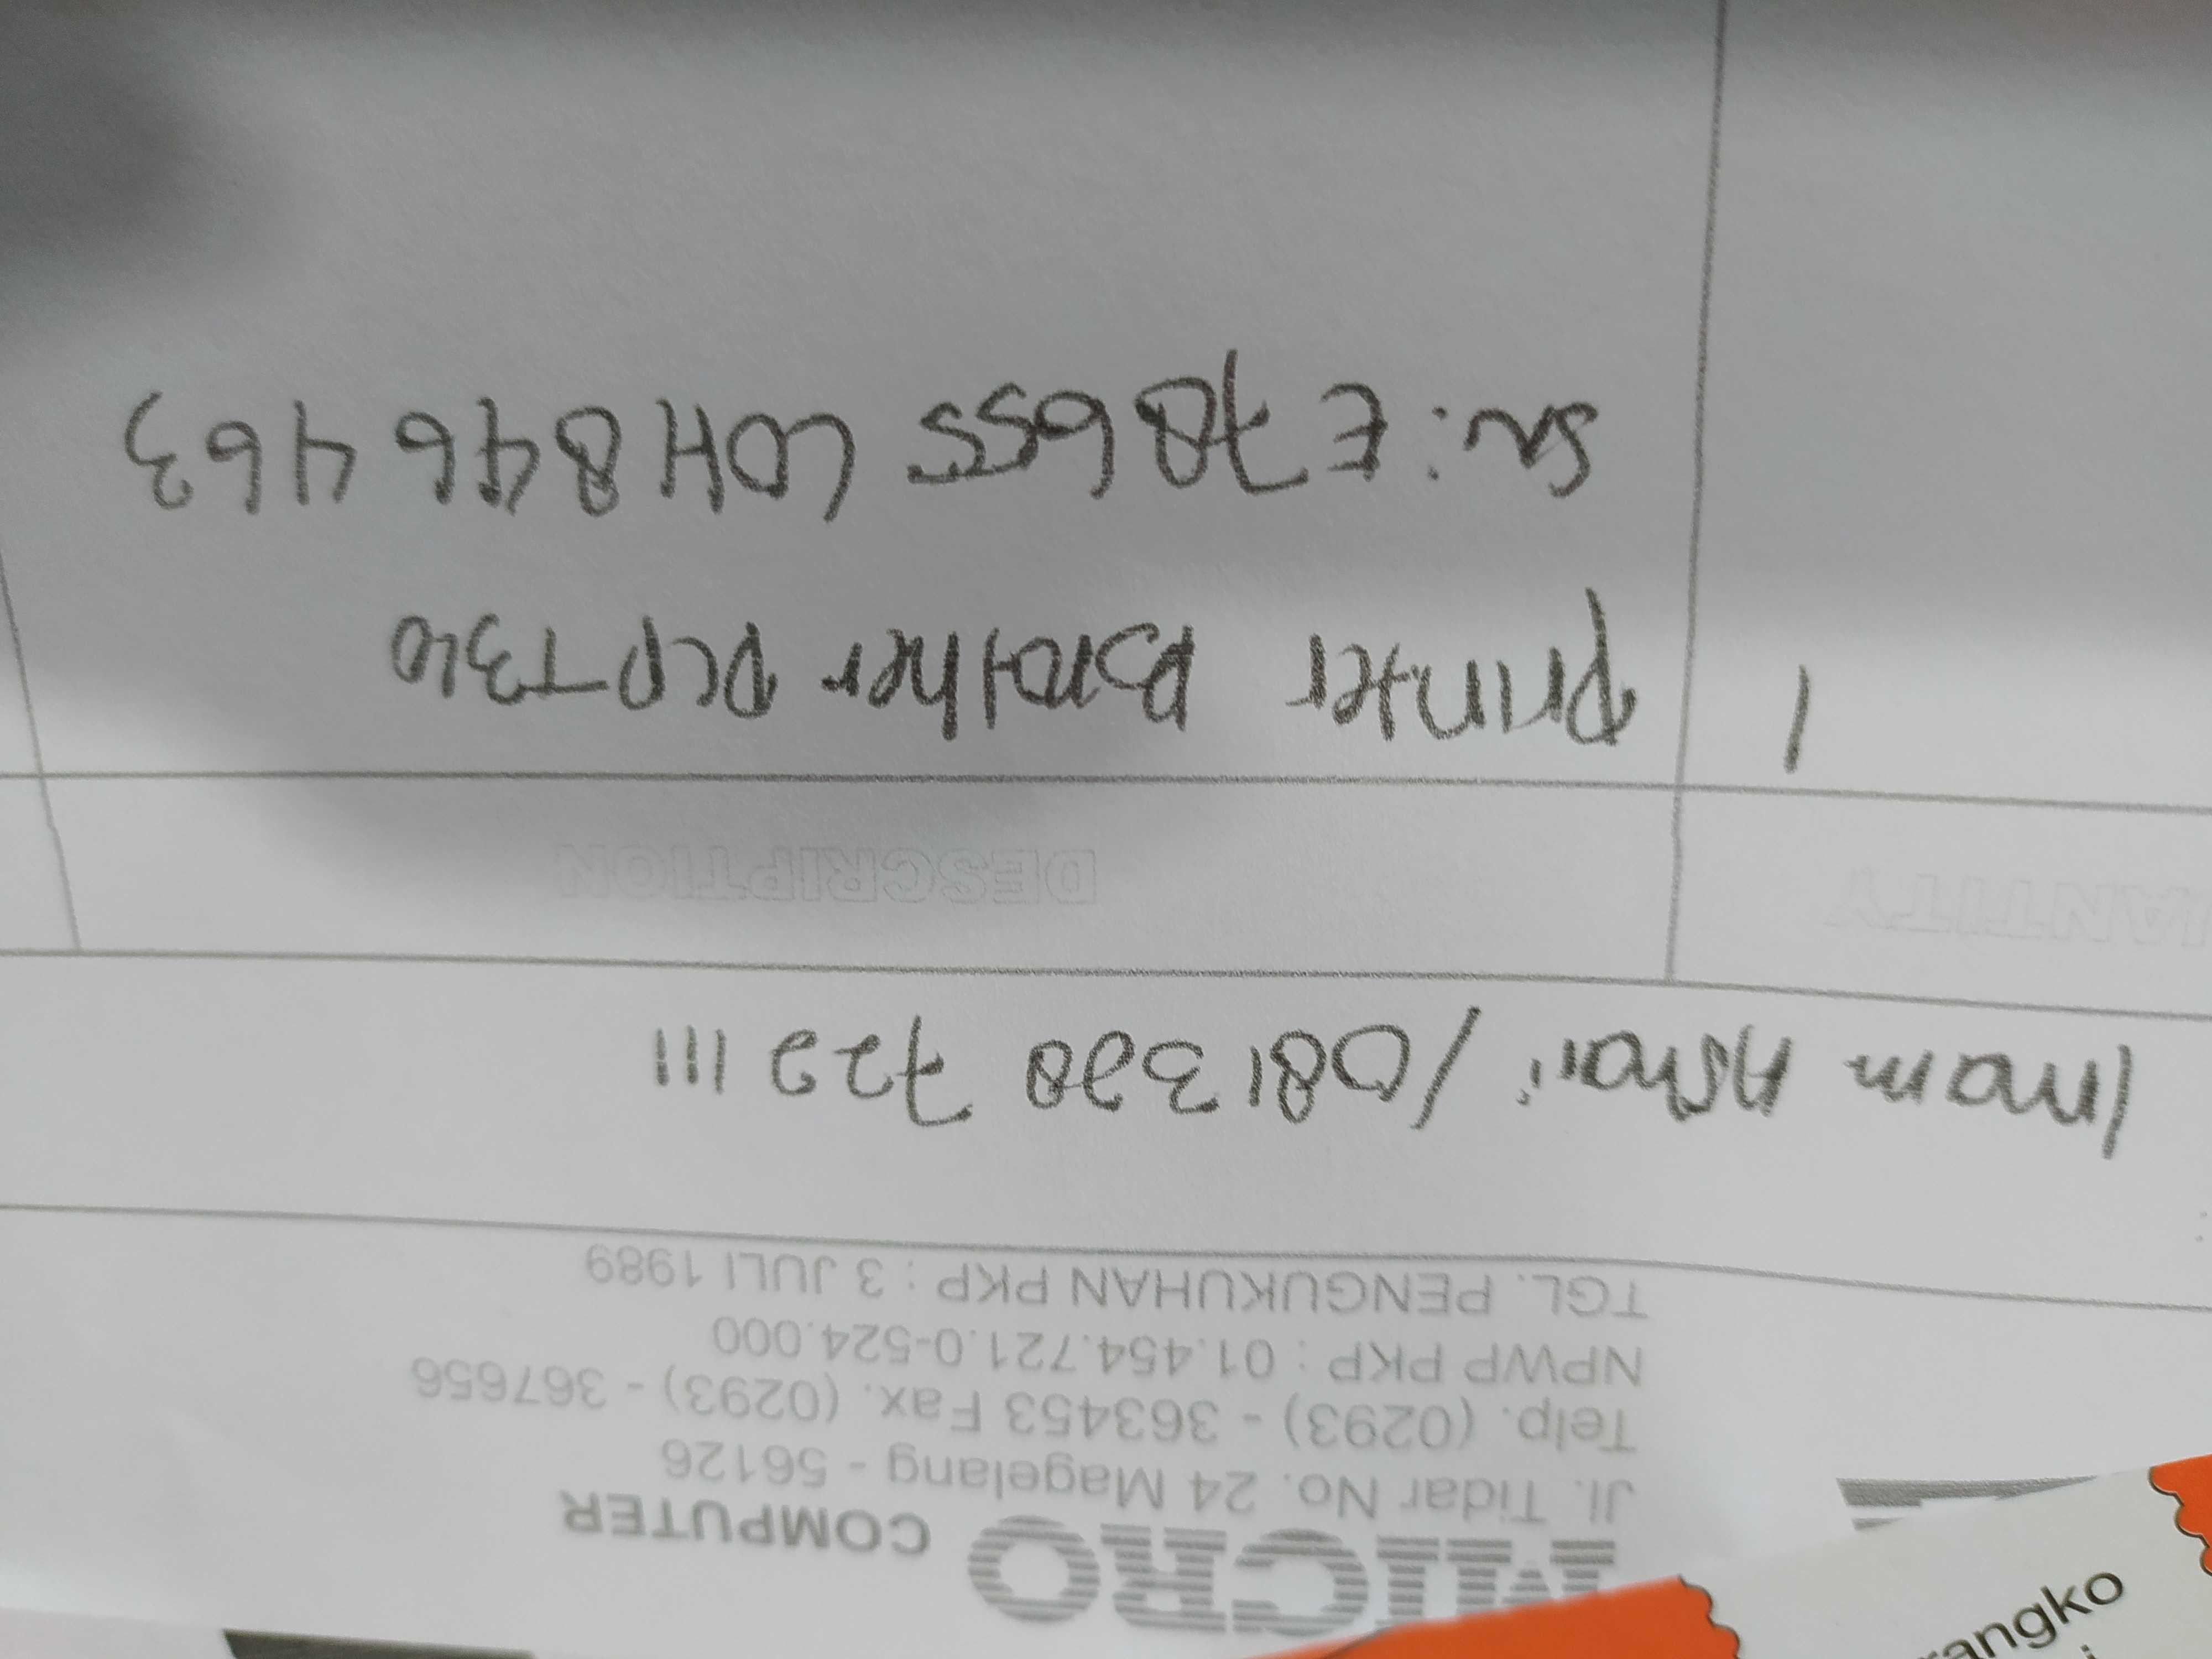 MICRO COMPUTER
Jl. Tidar No. 24 Magelang - 56126
Telp. (0293) - 363453 Fax. (0293) - 367656
NPWP PKP : 01.454.721.0-524.000
TGL. PENGUKUHAN PKP : 3 JULI 1989
Imam Ashari /081 390 722 111
DESCRIPTION
1 Printer Brother DCP T310
SN: E 78655 LOH 846 463